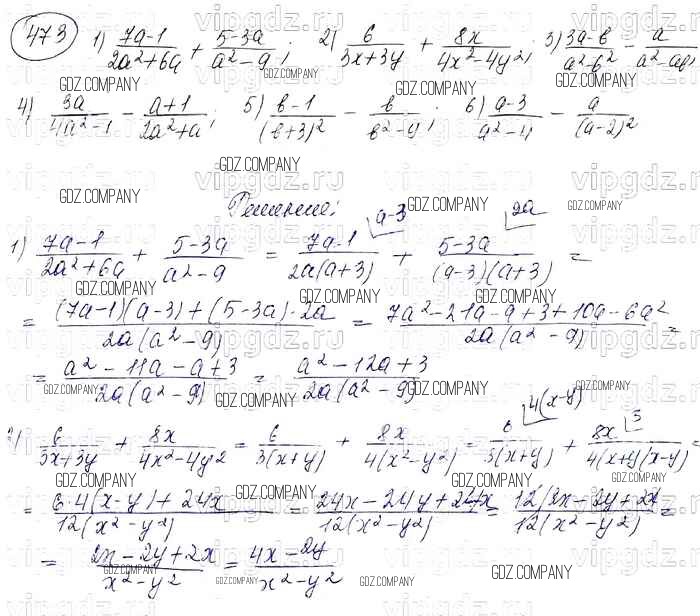 473 1) (7a-1)/(2a²+6a) + (5-3a)/(a²-9); 2) 6/(3x+3y) + 8x/(4x²-4y²); 3) (3a-b)/(a²-b²) - a/(a²-ab);
4) 3a/(4a²-1) - (a+1)/(2a²+a); 5) (b-1)/(b+3)² - b/(b²-9); 6) (a-3)/(a²-4) - a/(a-2)²
Решение:
1) (7a-1)/(2a²+6a) + (5-3a)/(a²-9) = (7a-1)/(2a(a+3)) a-3 + (5-3a)/((a-3)(a+3)) 2a =
= ((7a-1)(a-3)+(5-3a)·2a)/(2a(a²-9)) = (7a²-21a-a+3+10a-6a²)/(2a(a²-9)) =
= (a²-11a-a+3)/(2a(a²-9)) = (a²-12a+3)/(2a(a²-9))
2) 6/(3x+3y) + 8x/(4x²-4y²) = 6/(3(x+y)) + 8x/(4(x²-y²)) = 6/(3(x+y)) 4(x-y) + 8x/(4(x+y)(x-y)) 3 =
= (6·4(x-y)+24x)/(12(x²-y²)) = (24x-24y+24x)/(12(x²-y²)) = 12(2x-2y+2x)/(12(x²-y²)) =
= (2x-2y+2x)/(x²-y²) = (4x-2y)/(x²-y²)
vipgdz.ru
GDZ.COMPANY